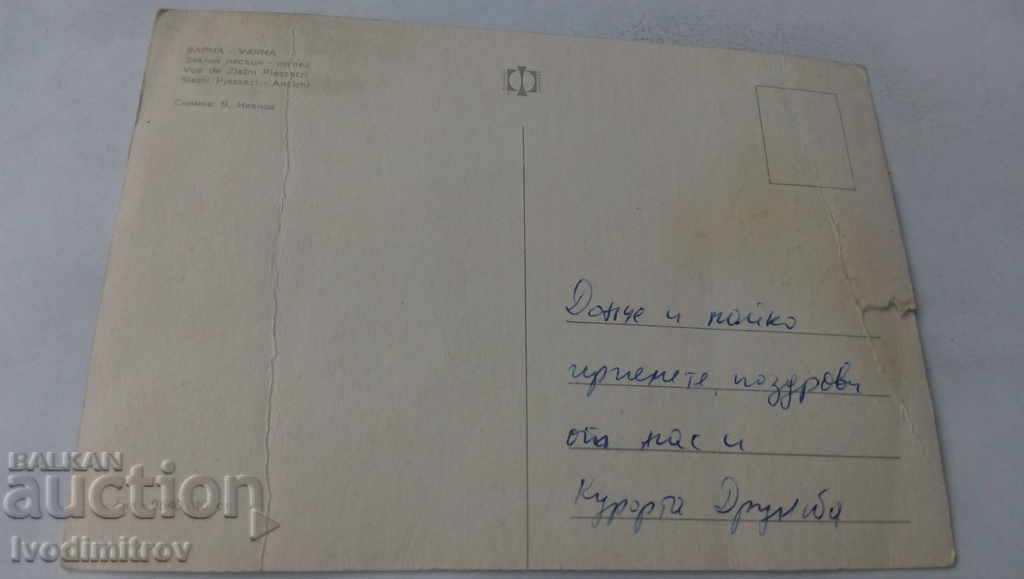 ВАРНА - VARNA
Златни пясъци - изглед
Vue de Zlatni Piassatzi
Slatni Pjassazi - Ansicht
Снимка: В.
Донче и
приемете поздрови
от нас и
Курорта Дружба
BALKAN
auction
Ivodimitrov